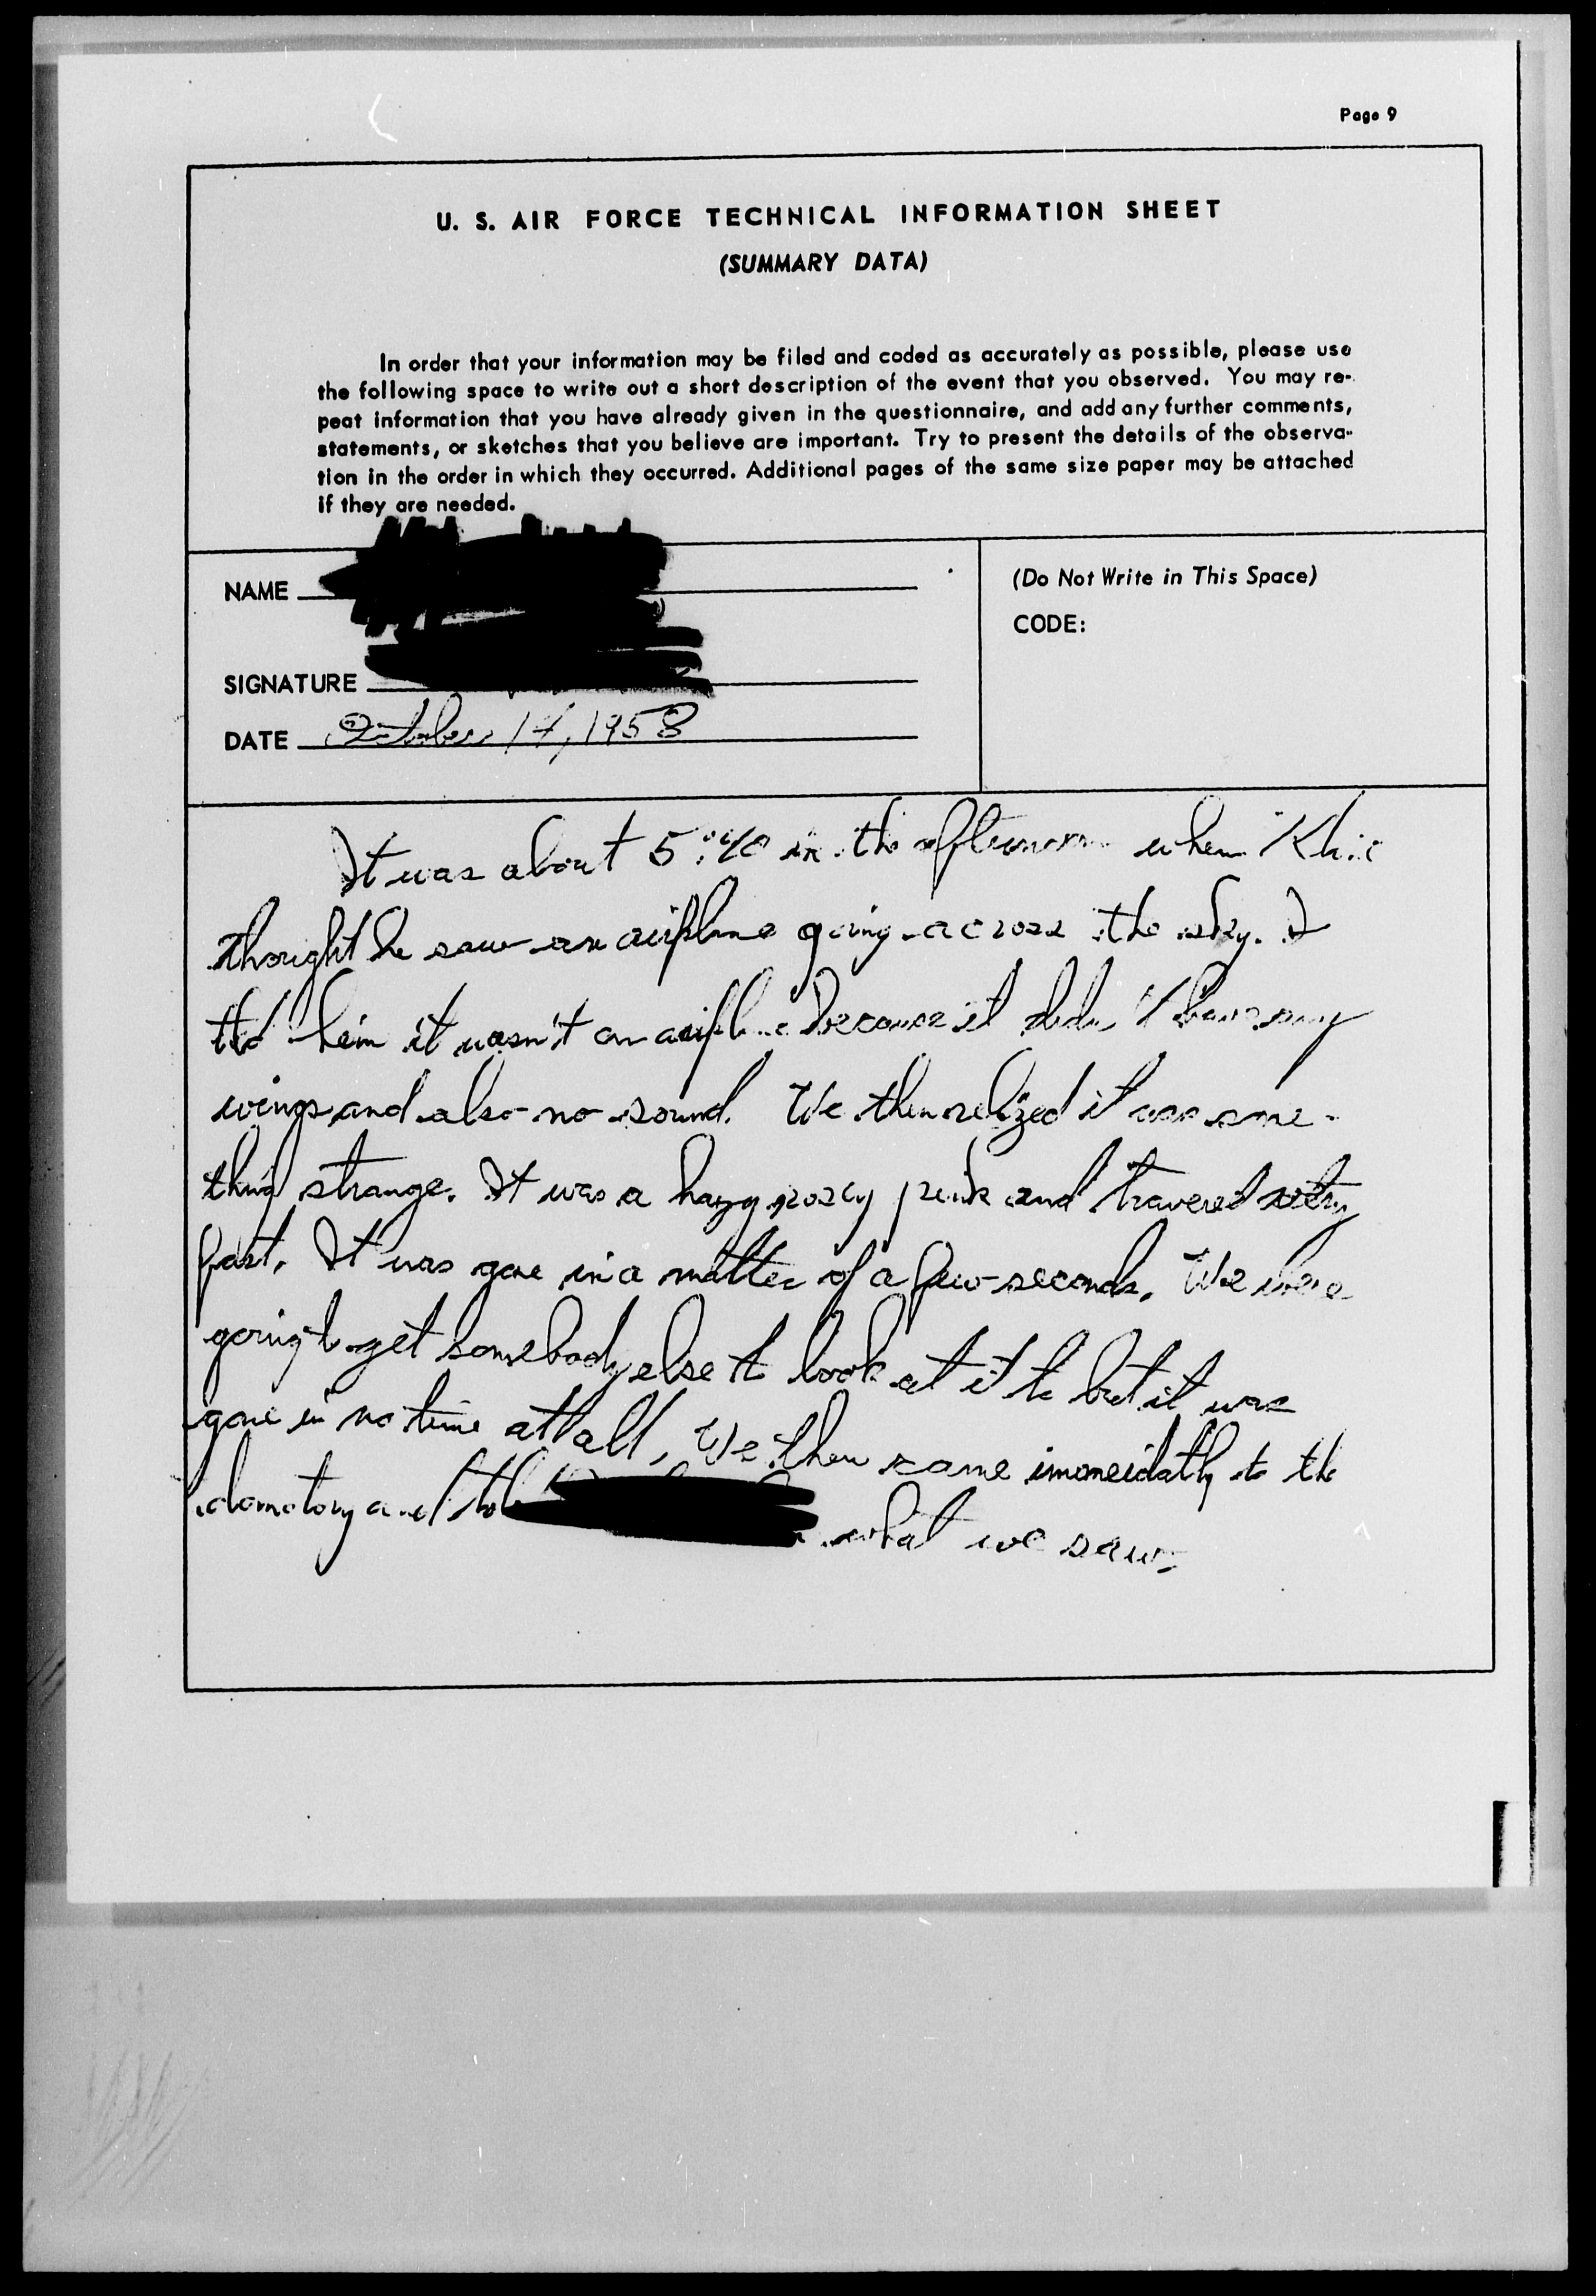 Page 9
U. S. AIR FORCE TECHNICAL INFORMATION SHEET
(SUMMARY DATA)
In order that your information may be filed and coded as accurately as possible, please use
the following space to write out a short description of the event that you observed. You may re-
peat information that you have already given in the questionnaire, and add any further comments,
statements, or sketches that you believe are important. Try to present the details of the observa-
tion in the order in which they occurred. Additional pages of the same size paper may be attached
if they are needed.
NAME
(Do Not Write in This Space)
CODE:
SIGNATURE
DATE October 14, 1958
It was about 5:40 in the afternoon when
thought he saw an airplane going across the sky. I
him it wasn't an airplane because it didn't have any
wings and also no sound. We then relized it was some-
thing strange. It was a hazy rosey pink and very
fast. It was gone in a matter of a few seconds. We were
going to get somebody else to look at it to but it was
gone in no time at all. We then came to the
and told what we saw.